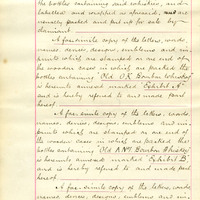 the bottles containing said whiskey, and
labelled and wrapped in aforesaid, and
usually packed and put up for sale by
claimant
A facsimile copy of the letters, words,
names, devices, designs, emblems and im-
prints which are stamped on one end of
the wooden cases in which are packed the
bottles containing "Old O.K. Bourbon Whiskey"
is hereunto annexed marked "Exhibit A"
and is hereby referred to and made part
hereof
A fac-simile copy of the letters, words,
names, devices, designs, emblems and im-
prints which are stamped on one end of
the wooden cases in which are packed the
bottles containing "Old A No 1 Bourbon Whiskey"
is hereunto annexed marked "Exhibit B,"
and is hereby referred to and made part
hereof.
A fac-simile copy of the letters, words,
names, devices, designs, emblems and im-